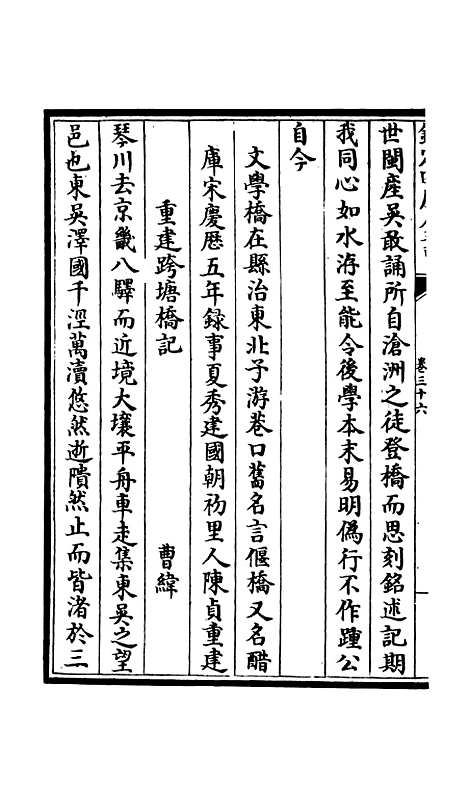 卷三十六
世閩産吳敢誦所自滄洲之徒登橋而思刻銘述記期
我同心如水洊至能令後學本末易明偽行不作踵公
自今
文學橋在縣治東北子游巷口舊名言偃橋又名醋
庫宋慶厯五年録事夏秀建國朝初里人陳貞重建
重建跨塘橋記 曹緯
琴川去京畿八驛而近境大壤平舟車走集東吳之望
邑也東吳澤國千涇萬瀆悠然逝隤然止而皆渚於三